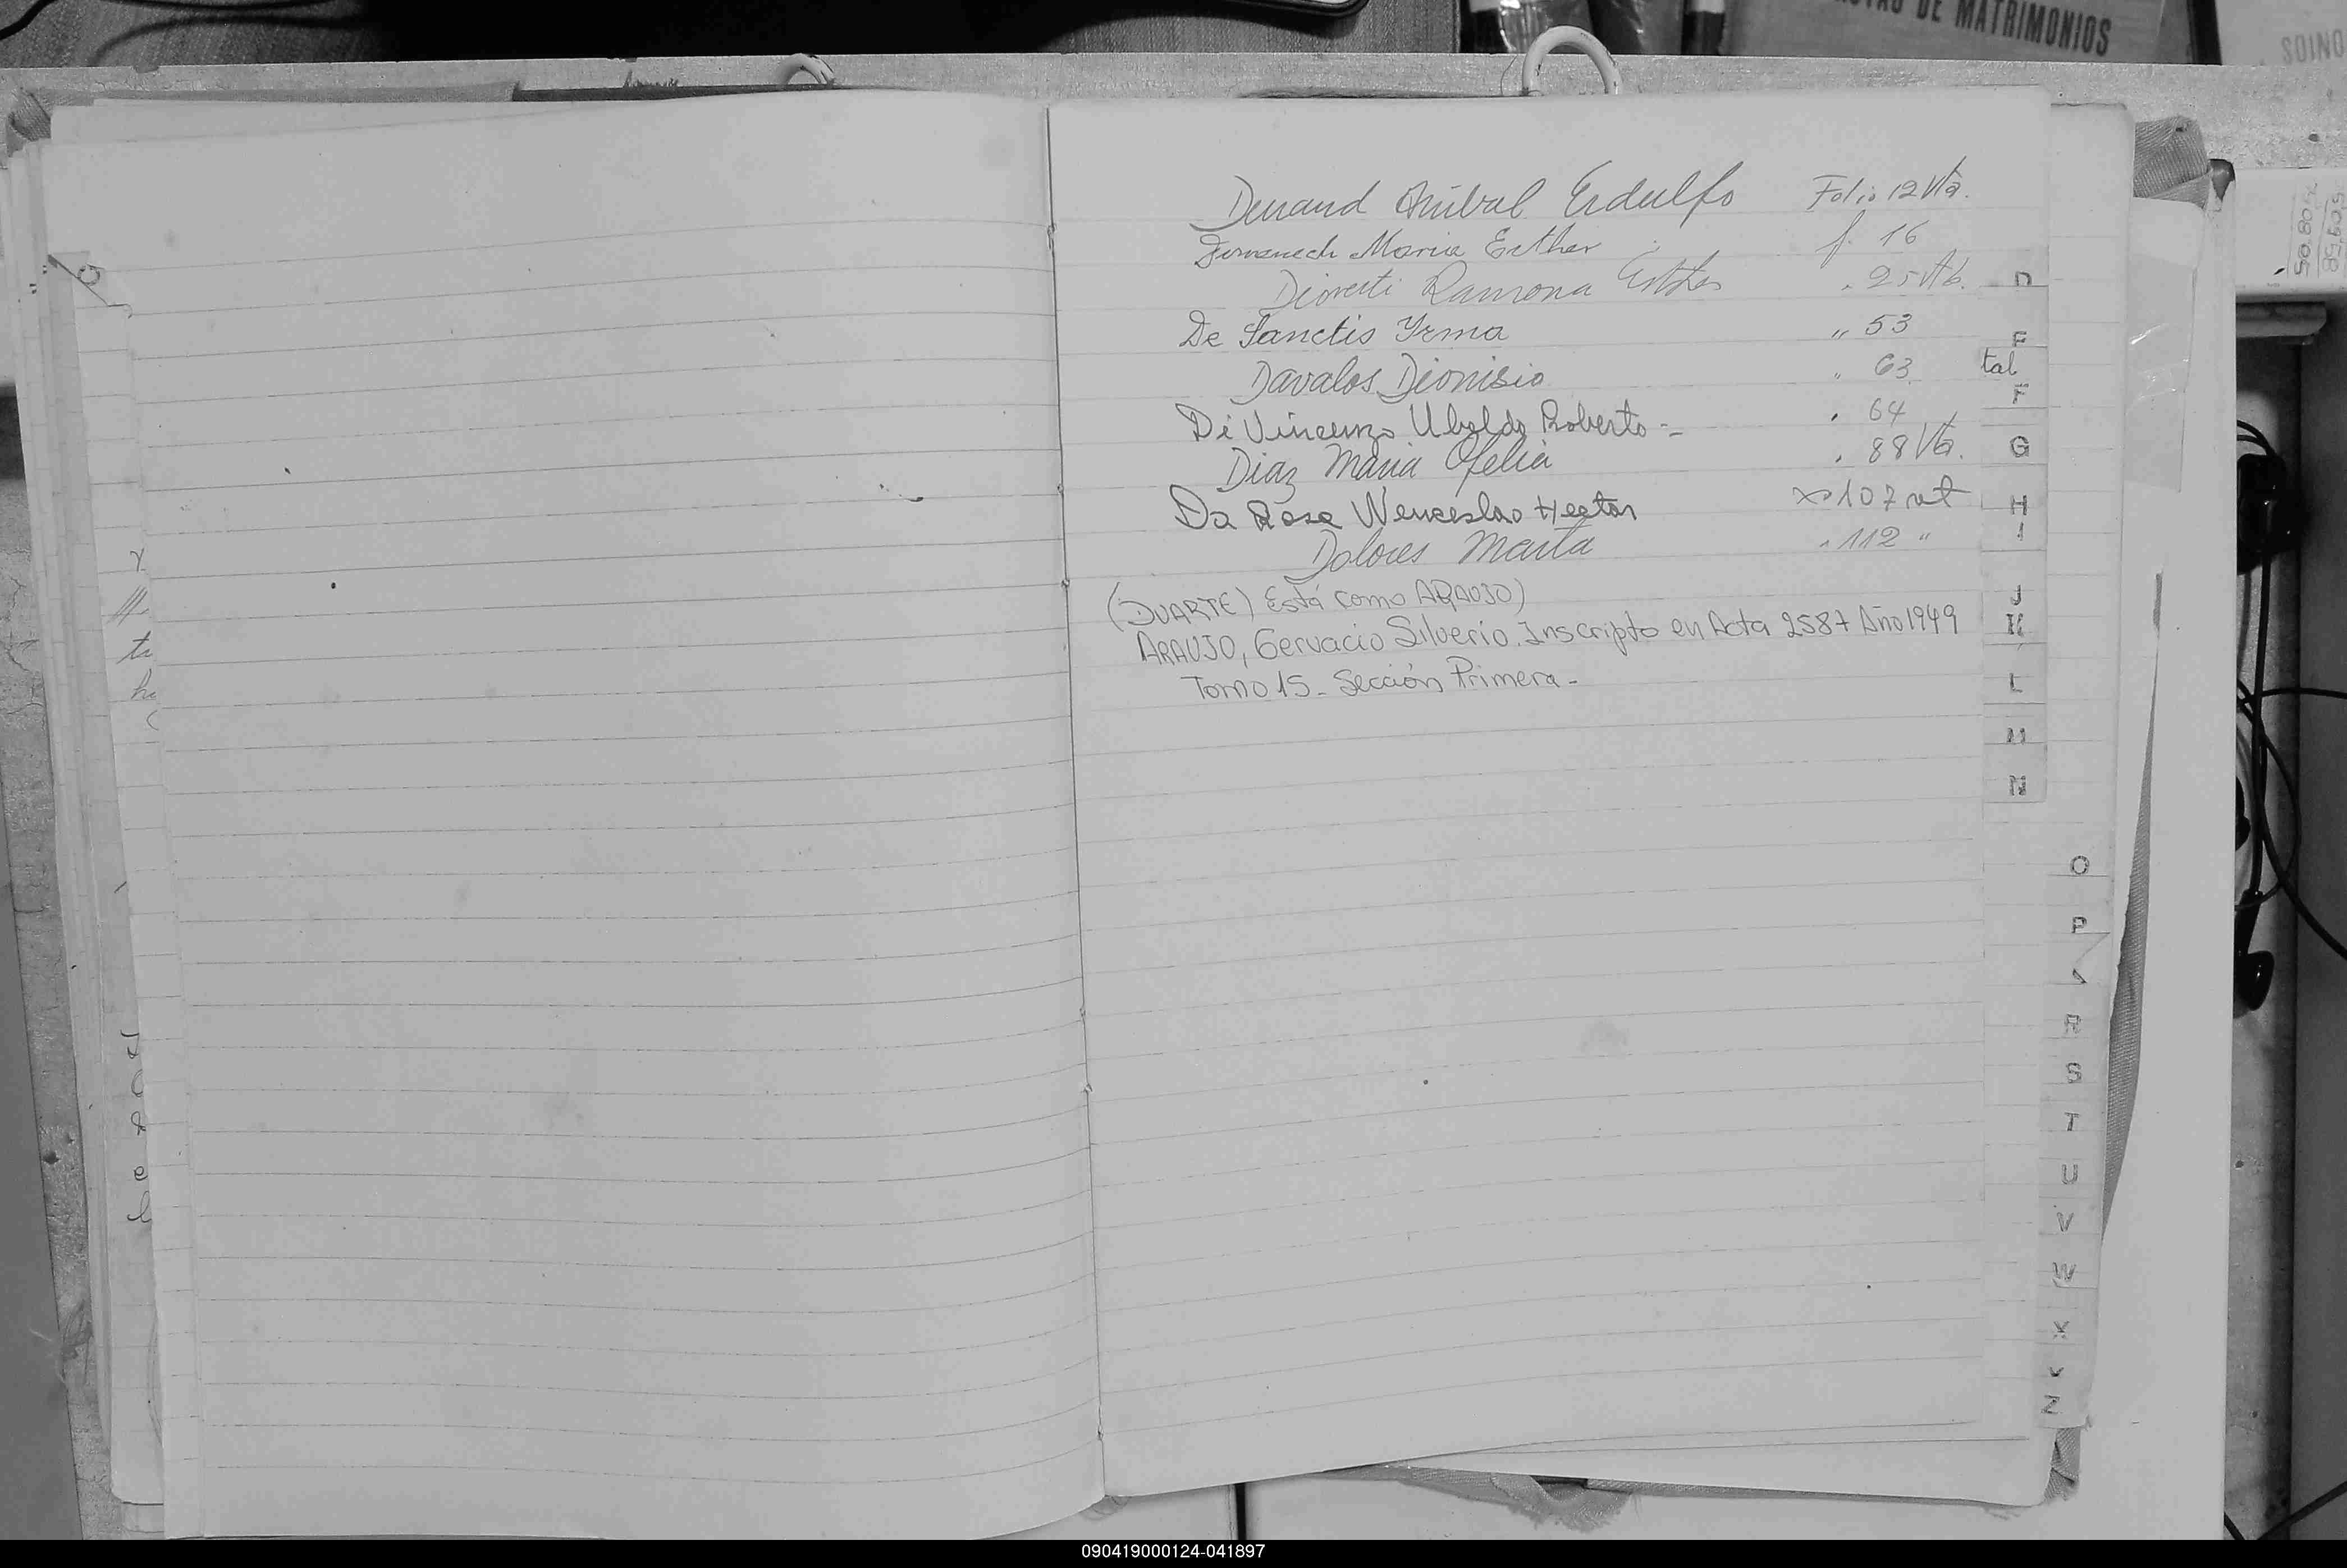 DE MATRIMONIOS
Durand Anibal Erdulfo Folio 12 Vta.
Domenech Maria Esther f. 16
Ramona Esther . 25 Vta.
De Sanctis Yrma " 53
Davalos Dionisio " 63
tal
Di Vincenzo Ubaldo Roberto - . 64
Diaz Maria Ofelia . 88 Vta.
Da Rosa Wenceslao Hector 107 vt
Dolores Marta " 112 "
(DUARTE) Está como ARAUJO)
ARAUJO, Gervacio Silverio. Inscripto en Acta 2587 Año 1949
Tomo 15 - Sección Primera -
D
E
F
G
H
I
J
K
L
M
N
O
P
R
S
T
U
V
W
X
Y
Z
090419000124-041897